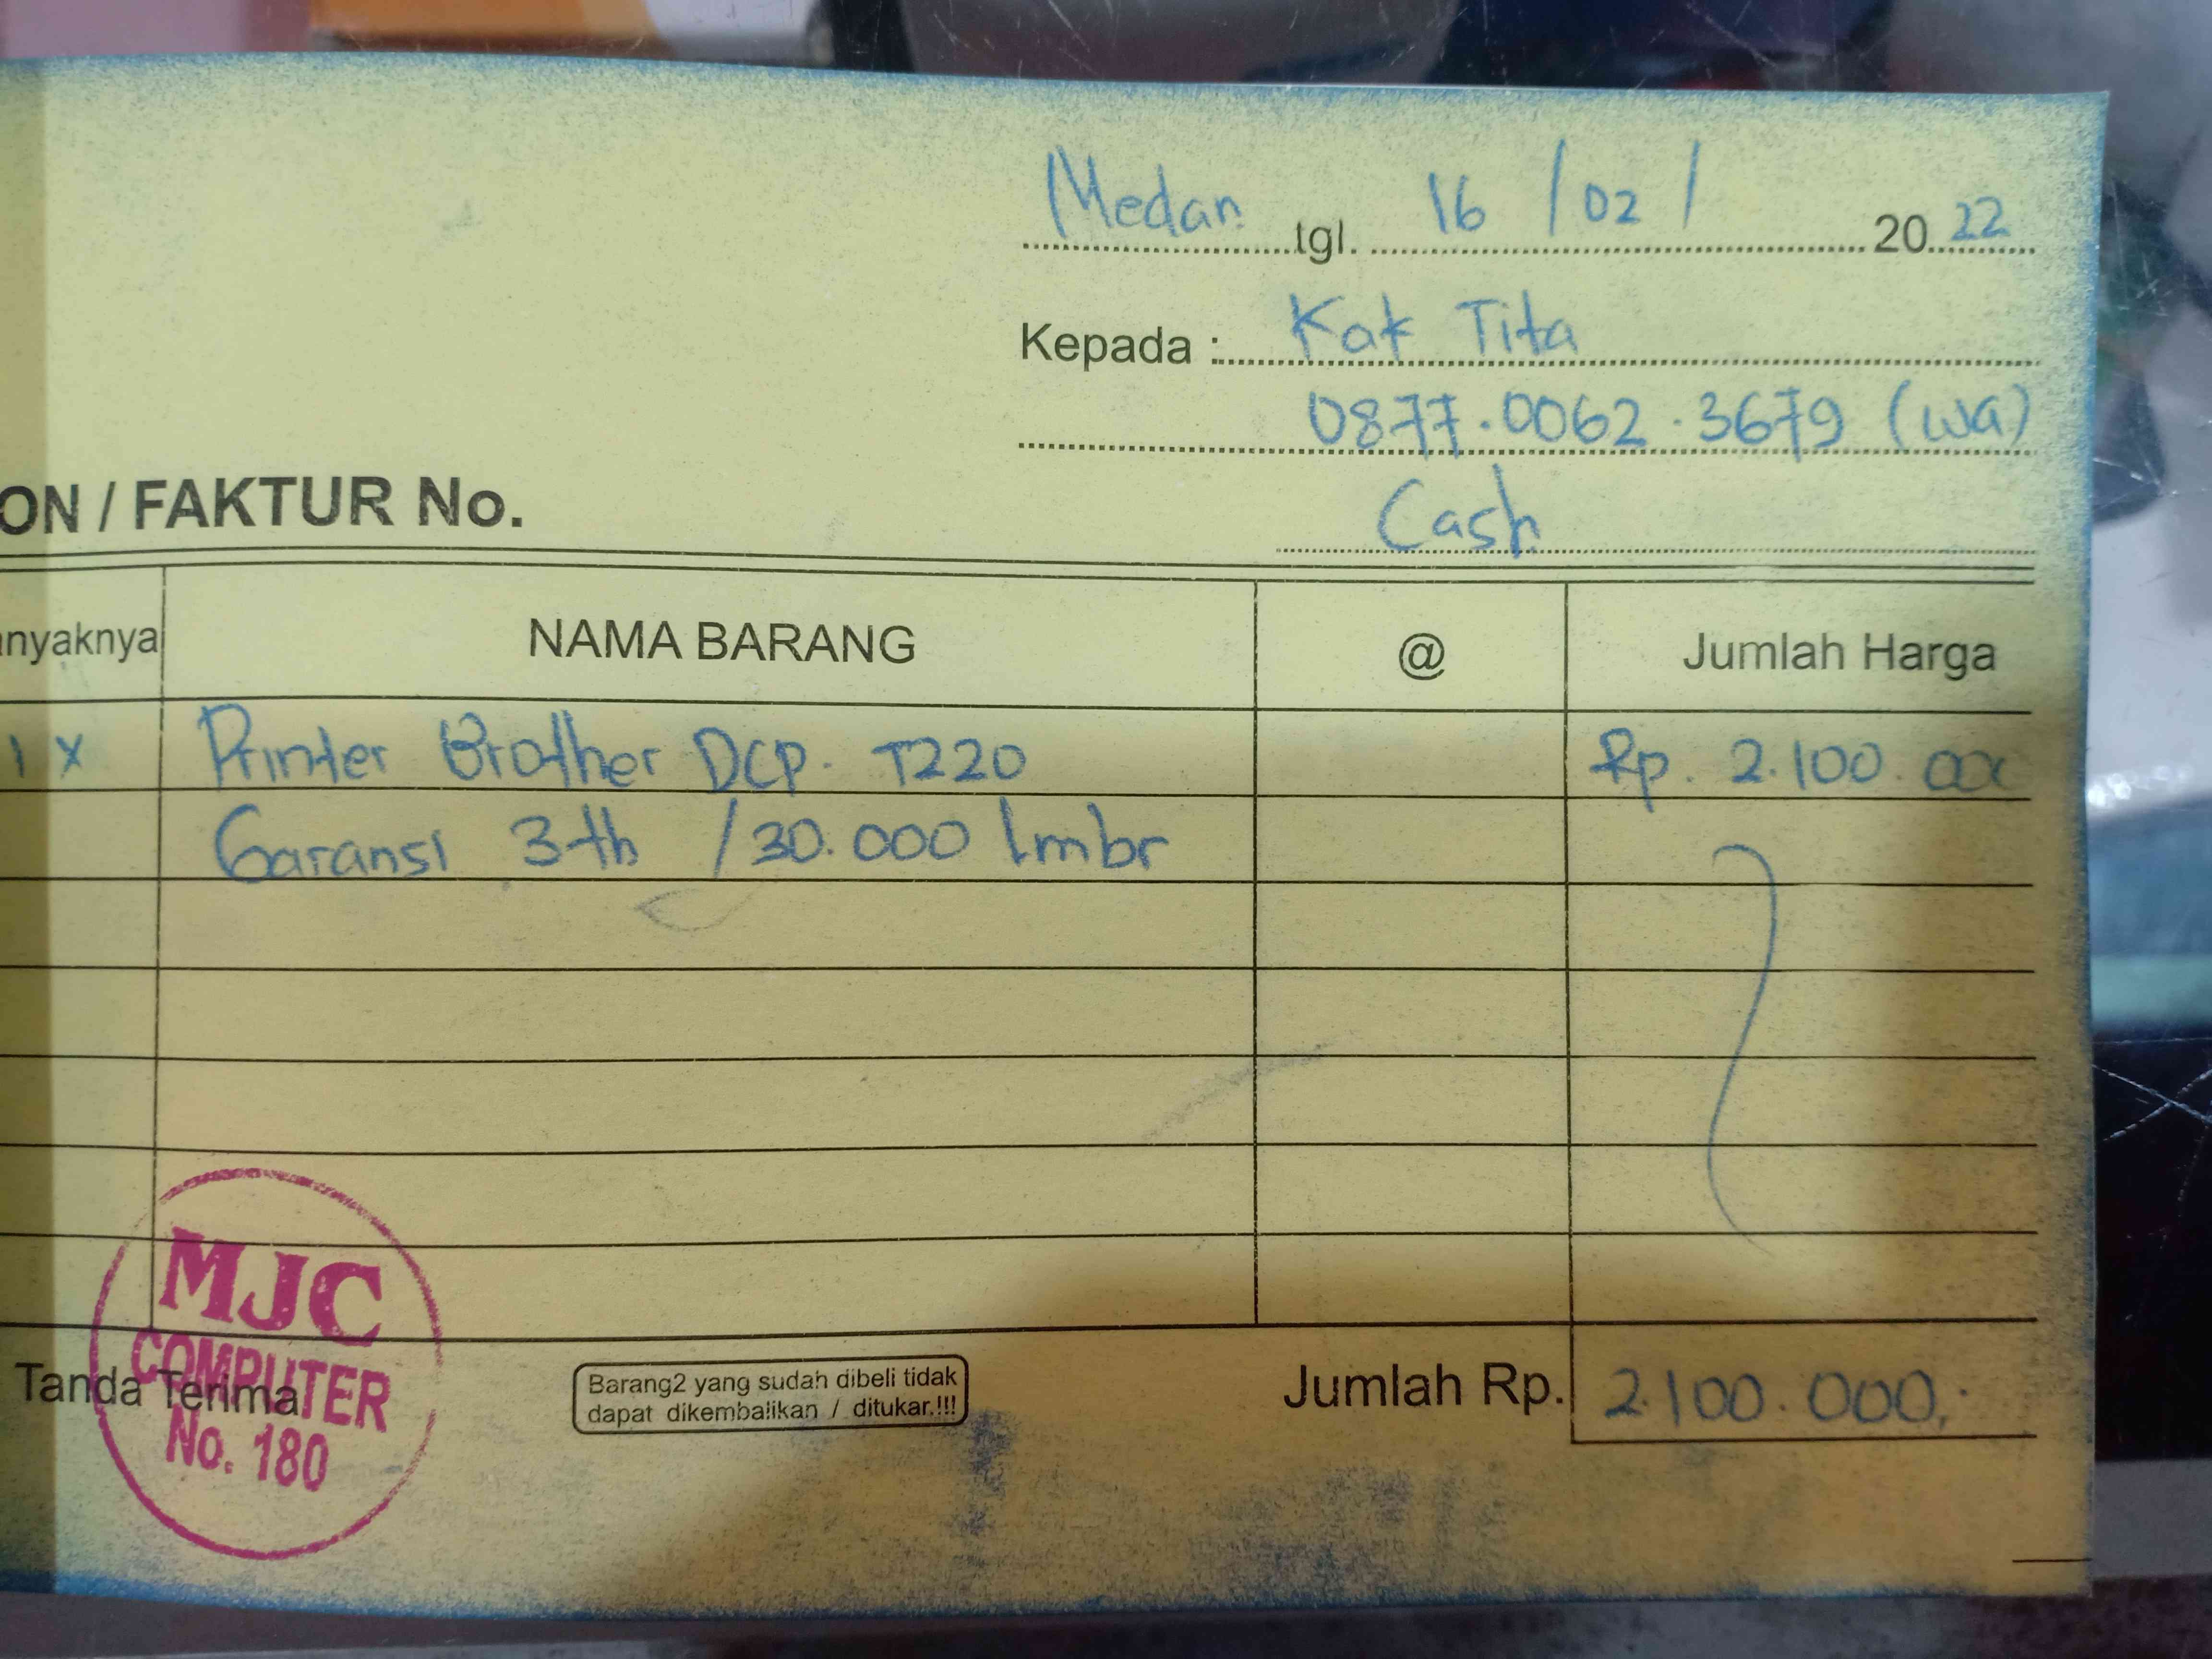 Medan tgl. 16 / 02 / 20 22
Kepada : Kak Tita
0877.0062.3679 (wa)
Cash
ON / FAKTUR No.
anyaknya NAMA BARANG @ Jumlah Harga
1 X Printer Brother DCP. T220 Rp. 2.100.000
Garansi 3 th / 30.000 lmbr
MJC
COMPUTER
No. 180
Tanda Terima
Barang2 yang sudah dibeli tidak
dapat dikembalikan / ditukar.!!!
Jumlah Rp. 2.100.000,-